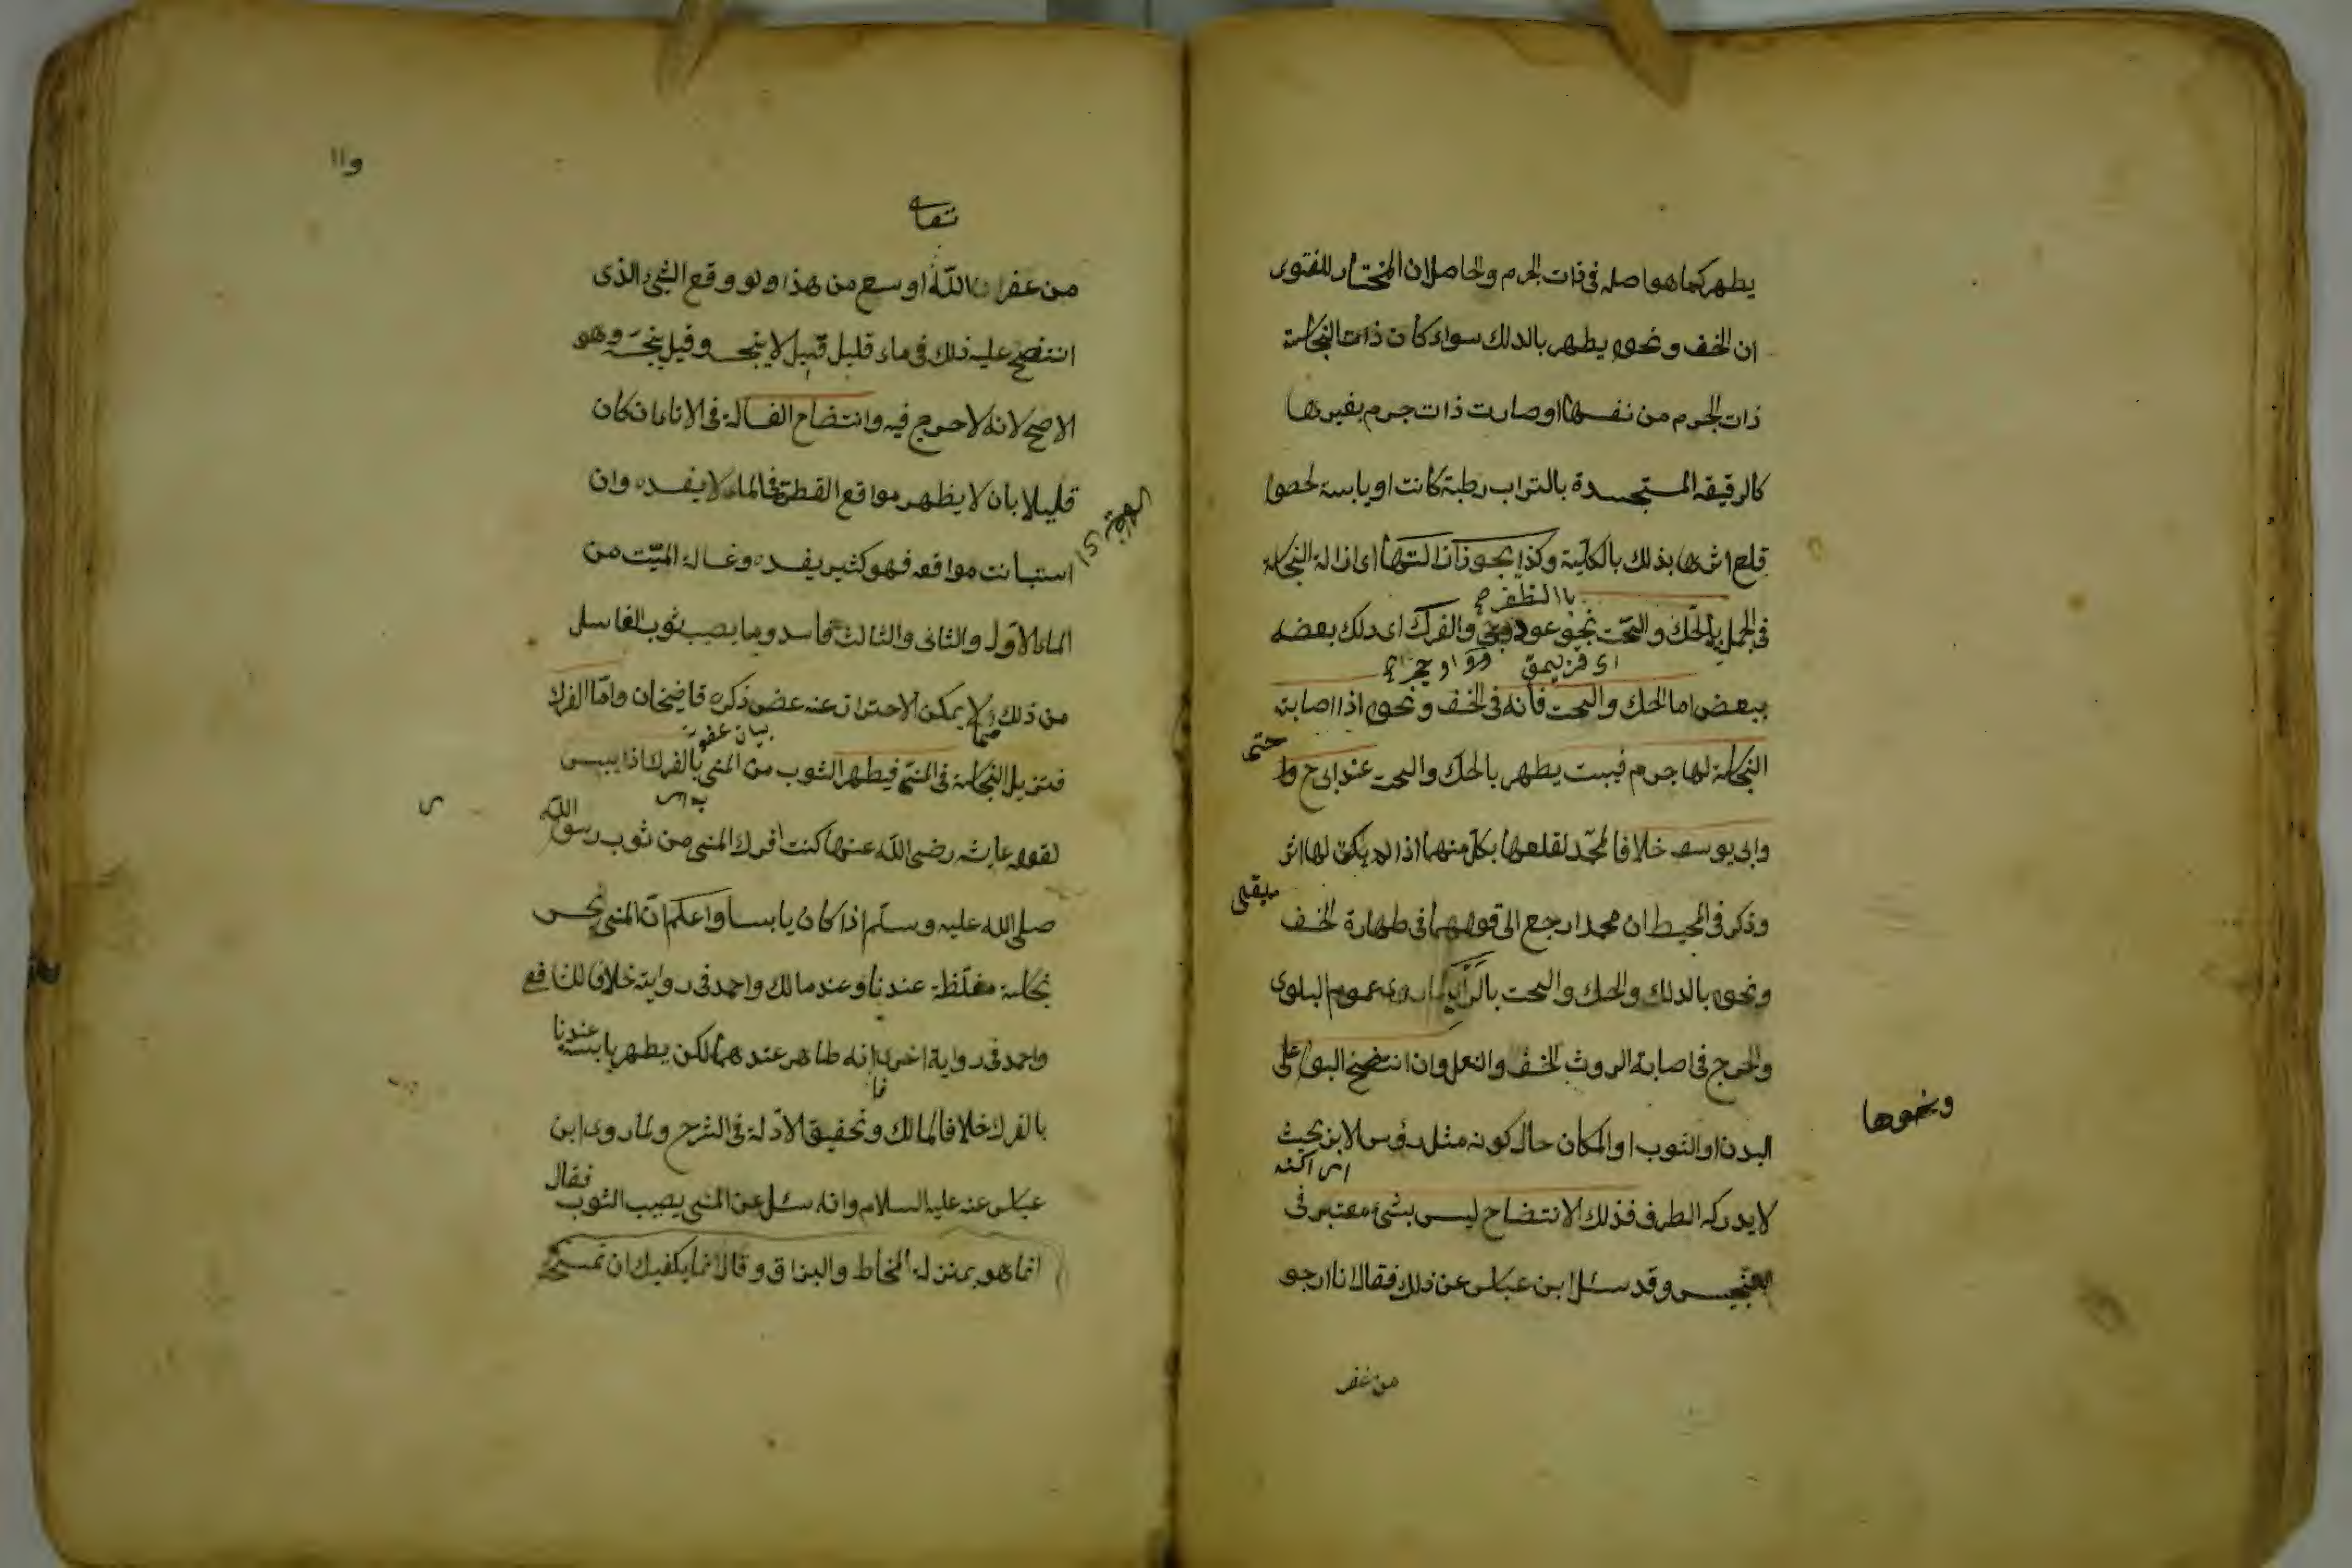 يطهر كما هو اصله في ذات الجرم والحاصل ان المختار للفتوى
ان الخف ونحوه يطهر بالدلك سواء كان ذات النجاسة
ذات الجرم من نفسها او صارت ذات جرم بغيرها
كالرقيقه المستجسدة بالتراب رطبة كانت او يابسة لحصول
قلع اثرها بذلك بالكلية وكذا يجوز ازالتها اى ازالة النجاسة
باالظفر
في الجملة بالحك والحت بنحو عود والفرك اى دلك بعضه
ببعض اما الحك والحت فانه في الخف ونحوه اذا اصابته
النجاسة لها جرم فيبست يطهر بالحك والحت عند ابى ح
حتى
وابى يوسف خلافا لمحمد لقلعها بكل منهما اذا لم يكن لها اثر
يبقى
وذكر في المحيط ان محمدا رجع الى قولهما في طهارة الخف
ونحوه بالدلك والحك والحت بالرى لما روى عموم البلوى
والحرج في اصابة الروث الخف والنعل وان انتضح البول على
ونحوها
البدن او الثوب او المكان حال كونه مثل رؤس الابر بحيث
لا يدركه الطرف فذلك الانتضاح ليس بشئ معتبر في
التنجيس وقد سئل ابن عباس عن ذلك فقال انا ارجو
من غفر
و١١
تعالى
من غفران الله اوسع من هذا ولو وقع الشئ الذى
انتضح عليه ذلك في ماء قليل قيل لا ينجسه وقيل ينجسه وهو
الاصح لانه لا حرج فيه وانتضاح الغسالة في الاناء ان كان
قليلا بان لا يظهر مواقع القطرة في الماء لا يفسده وان
استبانت مواقعه فهو كثير يفسده وغسالة الميت من
الماء الاول والثاني والثالث فاسد وما يصيب ثوب الغاسل
من ذلك لا يمكن الاحتراز عنه عفو ذكره قاضيخان واما الفرك
فتزيل النجاسة في المنى فيطهر الثوب من المنى بالفرك اذا يبس
لقول عايشه رضى الله عنها كنت افرك المنى من ثوب رسول الله
صلى الله عليه وسلم اذا كان يابسا واعلم ان المنى نجس
نجاسة مغلظة عندنا وعند مالك واحمد في رواية خلافا للشافعى
واحمد في رواية اخرى انه طاهر عندهما لكن يطهر يابسه عندنا
بالفرك خلافا لمالك وتحقيق الادلة في الشرح ولما روى ابن
عباس عنه عليه السلام وانه سئل عن المنى يصيب الثوب فقال
انما هو بمنزلة المخاط والبزاق وقال انما يكفيك ان تمسحه